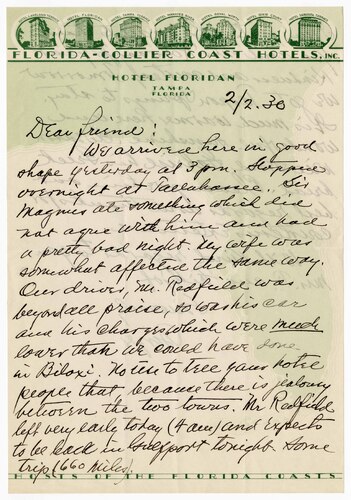 FLORIDA-COLLIER COAST HOTELS, INC.
HOTEL FLORIDAN
TAMPA
FLORIDA
2/2.30
Dear friend!
We arrived here in good
shape yesterday at 3 pm. Stopped
overnight at Tallahassee. Sis
Magnus ate something which did
not agree with him and had
a pretty bad night. My wife was
somewhat affected the same way.
Our driver, Mr. Redfield was
beyond all praise, so was his car
and his charges which were much
lower than we could have done
in Biloxi. No use to tell your hotel
people that because there is jealousy
between the two towns. Mr Redfield
left very early today (4 am) and expects
to be back in Gulfport tonight. Some
trip (660 miles).
HOSTS OF THE FLORIDA COASTS